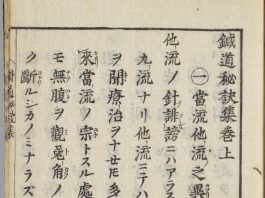 鍼道秘訣集巻上
㊀當流他流之異
他流ノ針誹謗ニハアラス
九流ナリ他流ニテハ
ヲ閉療治ヲ十廿
來當流ノ宗トスル處
モ無腹ヲ觀兔角ノ
ク斷ルシカノミナラズ